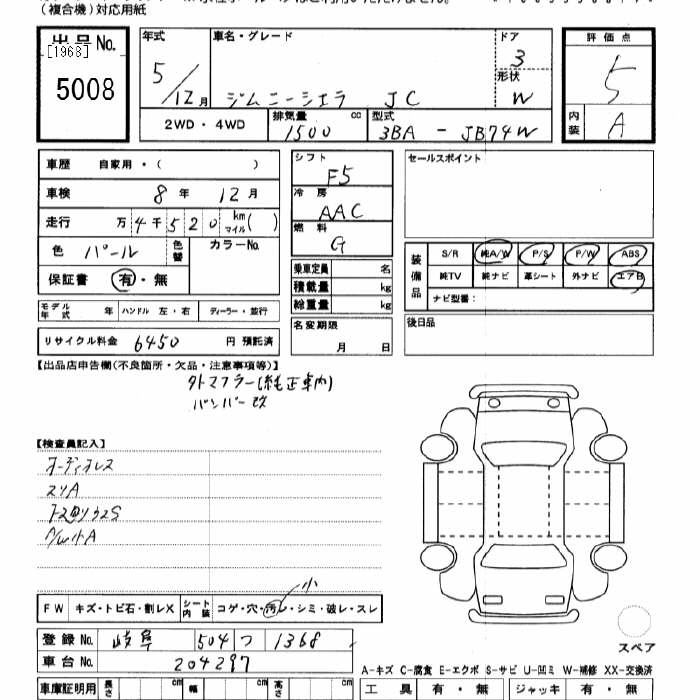 (複合機)対応用紙
出品No. [1963] 5008
年式 5/12月
車名・グレード ジムニーシエラ JC
ドア 3
形状 W
評価点 5
内装 A
2WD・4WD
排気量 1500 cc
型式 3BA - JB74W
車歴 自家用・( )
車検 8年 12月
走行 万 4千 5 2 0 km マイル( )
色 パール 色替 カラーNo.
保証書 有・無
モデル年式 年 ハンドル 左・右 ディーラー・並行
リサイクル料金 6450 円 預託済
シフト F5
冷房 AAC
燃料 G
乗車定員 名
積載量 kg
総重量 kg
名変期限 月 日
セールスポイント
装備品 S/R 純A/W P/S P/W ABS
純TV 純ナビ 革シート 外ナビ エアB
ナビ型番:
後日品
【出品店申告欄(不良箇所・欠品・注意事項等)】
外マフラー(純正車内)
バンパー改
【検査員記入】
オーディオレス
スリA
FW キズ・トビ石・割レX シート内装 コゲ・穴・汚レ・シミ・破レ・スレ
小
登録No. 岐阜 504 つ 1368
車台No. 204297
車庫証明用 長さ cm 幅 cm 高さ cm
スペア
A-キズ C-腐食 E-エクボ S-サビ U-凹ミ W-補修 XX-交換済
工具 有・無 ジャッキ 有・無